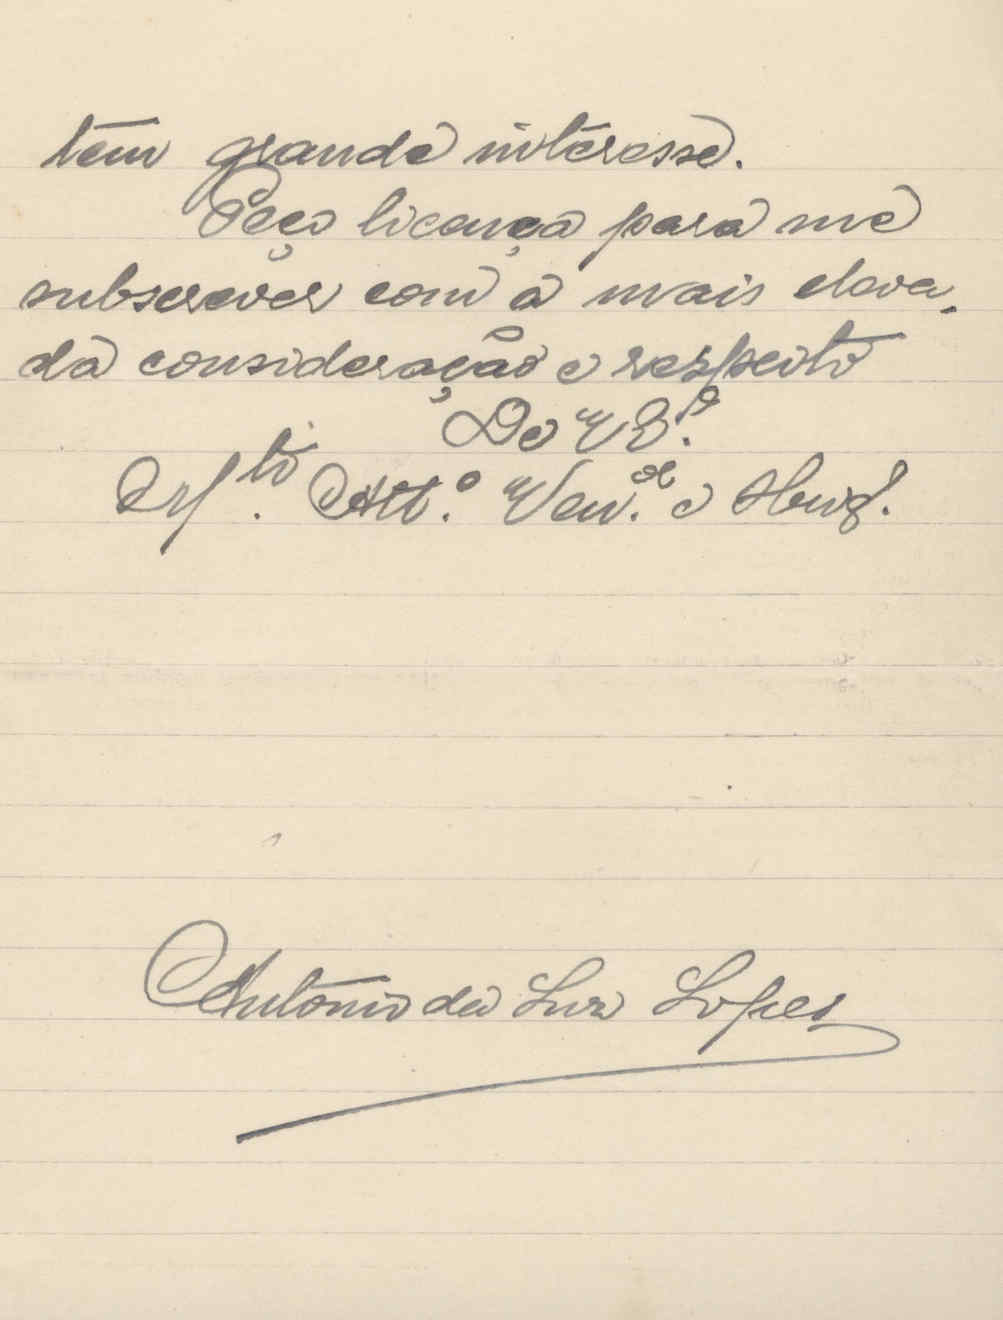 tem grande interesse.
Peço licença para me
subscrever com a mais eleva-
da consideração e respeito
De V. E.ª
M.to Att.o Ven.or e Obrig.
António da Luz Lopes